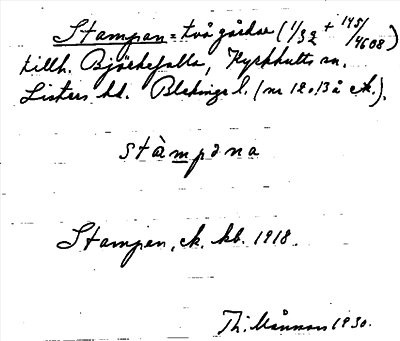 Stampan = två gårdar (1/32 + 145/4608)
tillh. Björkefalla, Kyrkhults sn.
Listers hd. Blekinge l. (nr 12 o 13 å ek.).
stàmpəna
Stampen, ek. kb. 1918.
Th. Månsson 1930.